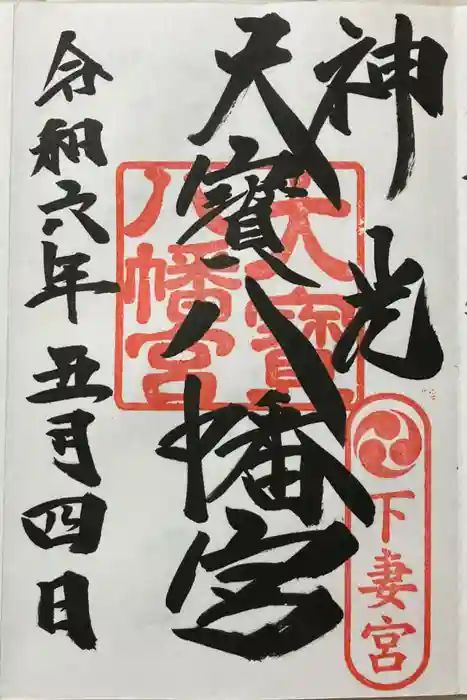 神光
天寳八幡宮
令和六年五月四日
天寳
八幡宮
下妻宮